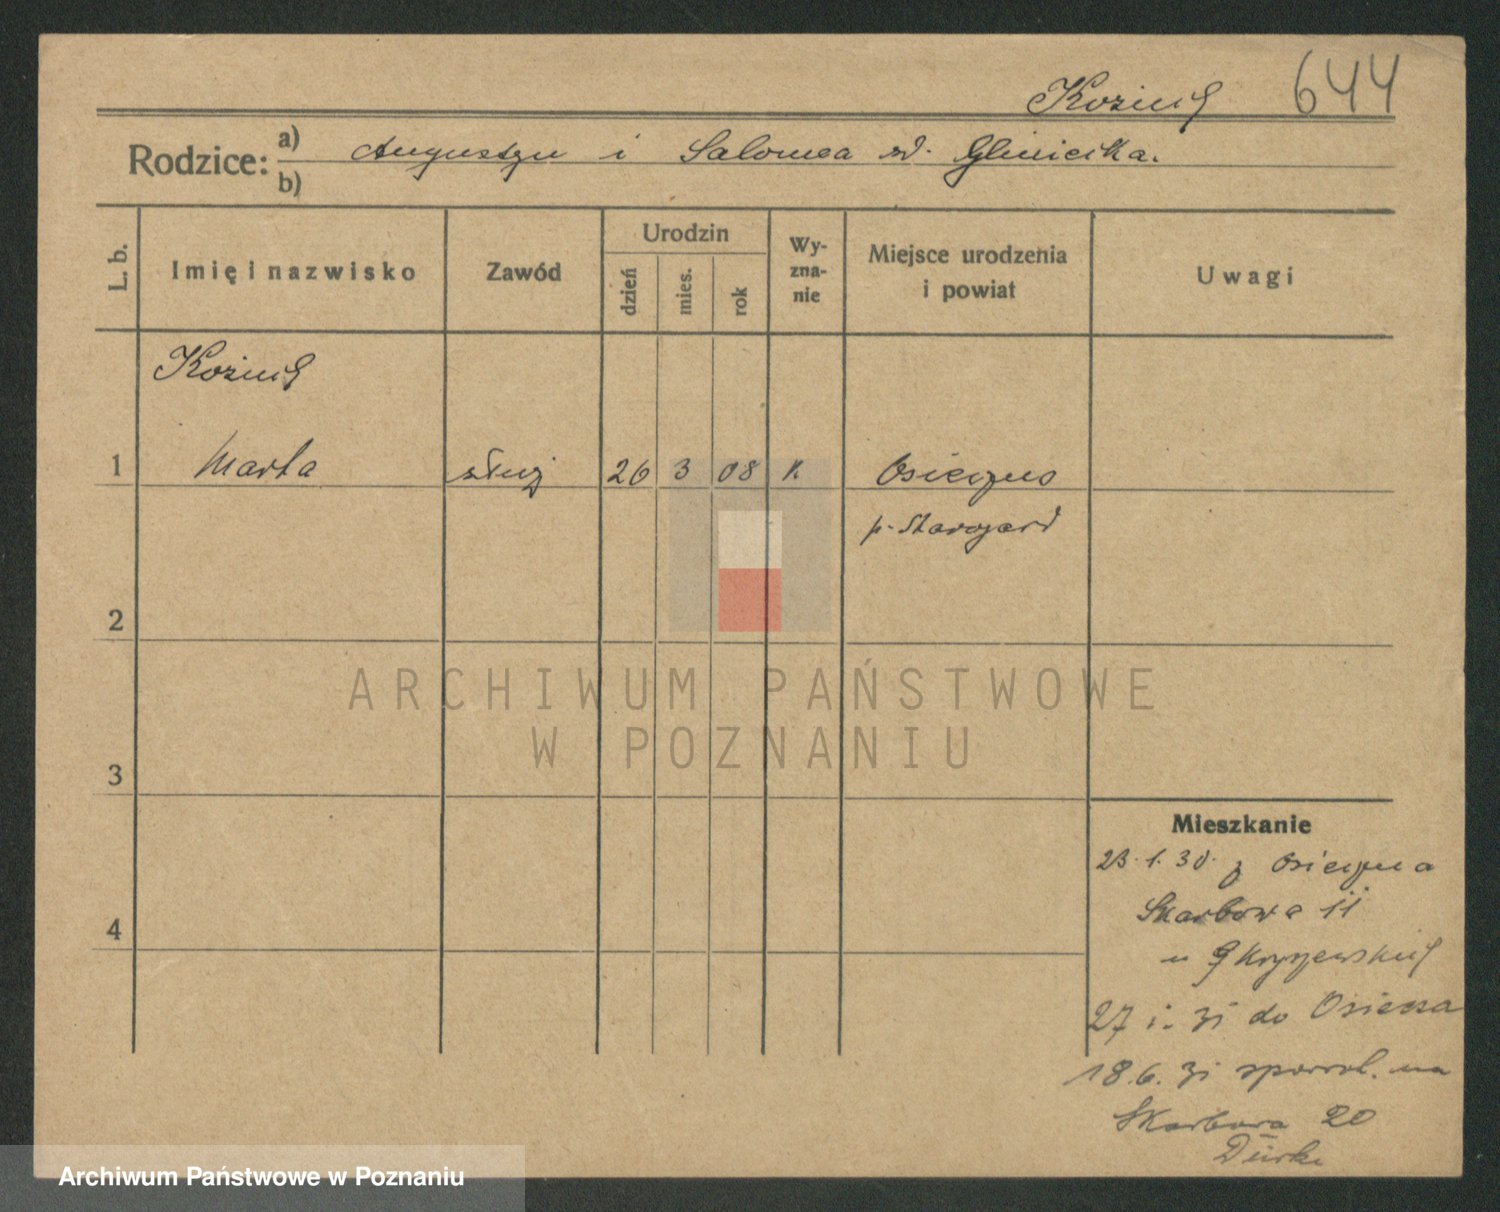 Kozieł 644
Rodzice: a) Augustyn i Salomea
b)
L. b. Imię i nazwisko Zawód Urodzin dzień mies. rok Wyznanie Miejsce urodzenia i powiat Uwagi
Kozieł
1 Marta służ 26 3 08 k. Osieczna
p. Starogard
2
ARCHIWUM PAŃSTWOWE
W POZNANIU
3
Mieszkanie
23.1.30. z Osieczna
Skarbowa 11
u
4
27 1. 31 do
18.6.31 na
Skarbowa 20
Archiwum Państwowe w Poznaniu